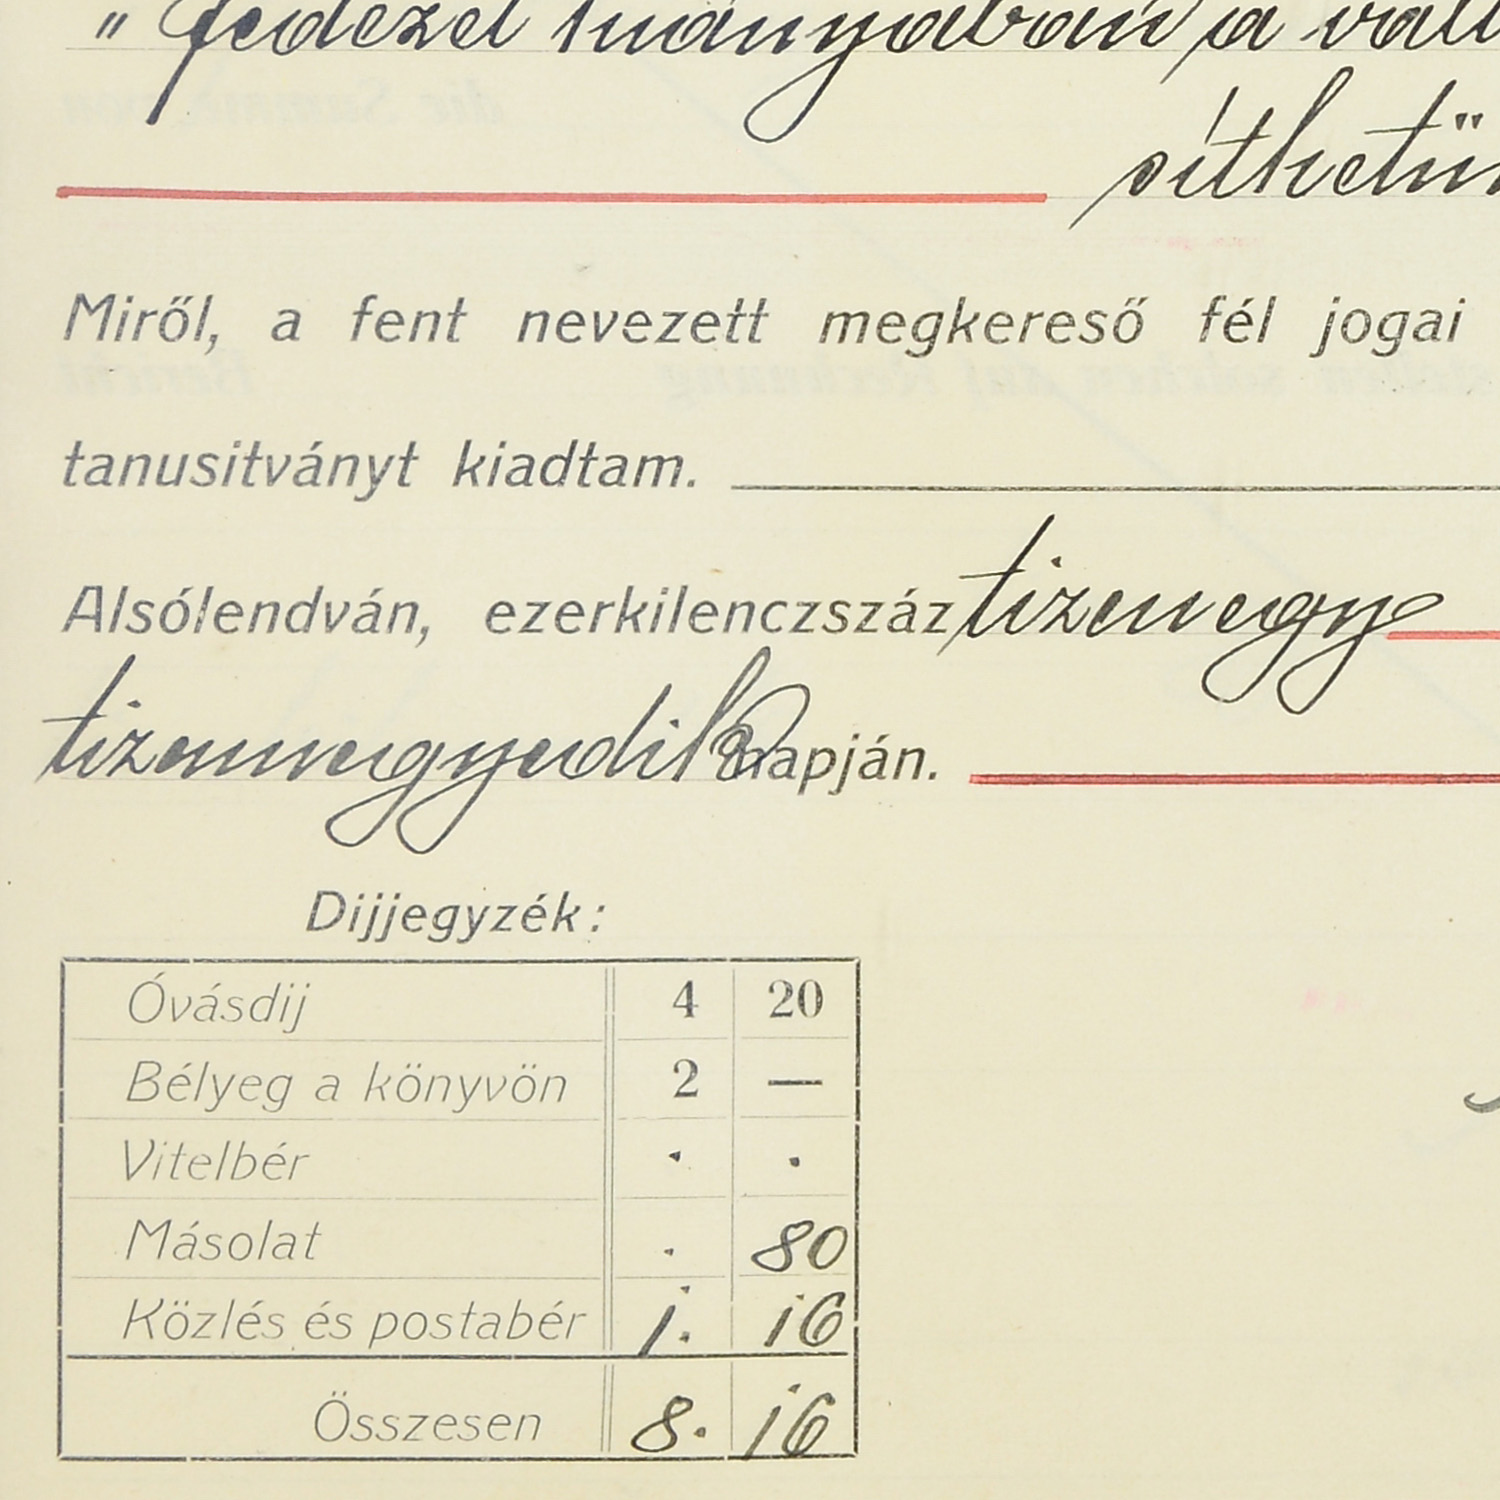 " fedezet hiányában a vált
síthetün
Miről, a fent nevezett megkereső fél jogai
tanusitványt kiadtam.
Alsólendván, ezerkilenczszáz tizenegy
tizennegyedik napján.
Dijjegyzék:
Óvásdij 4 20
Bélyeg a könyvön 2 —
Vitelbér . .
Másolat . 80
Közlés és postabér 1. 16
Összesen 8. 16